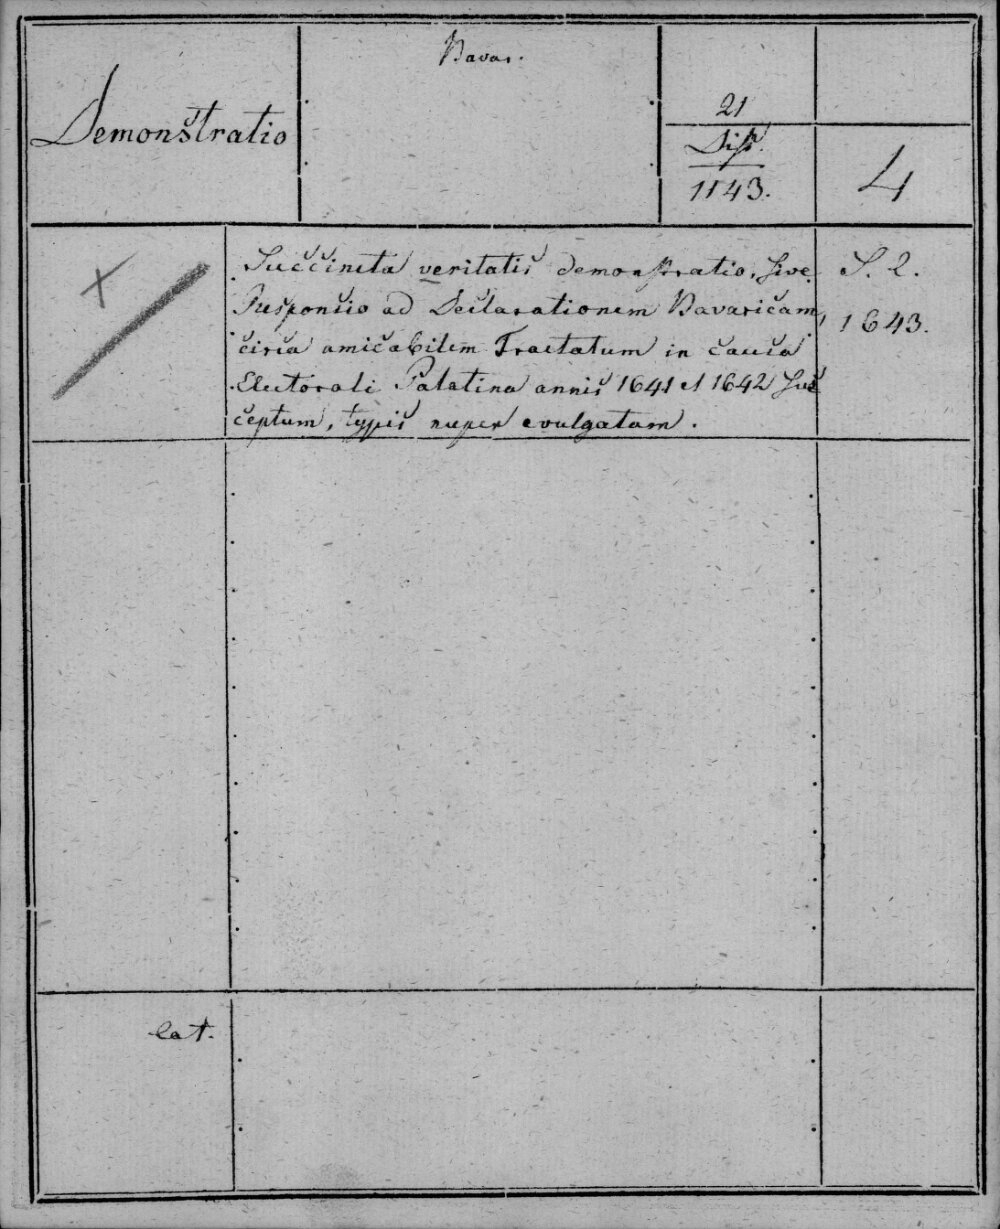 Demonstratio
Bavar.
21
Diss.
1143.
4
Succincta veritatis demonstratio, sive
Responsio ad Declarationem Bavaricam,
circa amicabilem Tractatum in causa
Electorali Palatina annis 1641 et 1642 sus
ceptum, typis nuper evulgatam.
S. l.
1643.
lat.